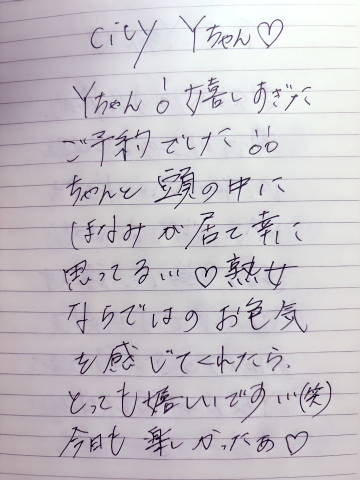 city Yちゃん♡
Yちゃん! 嬉しすぎた
ご予約でした!!
ちゃんと頭の中に
ほなみが居て幸に
思ってる…♡熟女
ならではのお色気
を感じてくれたら、
とっても嬉しいです…(笑)
今日も楽しかったぁ♡